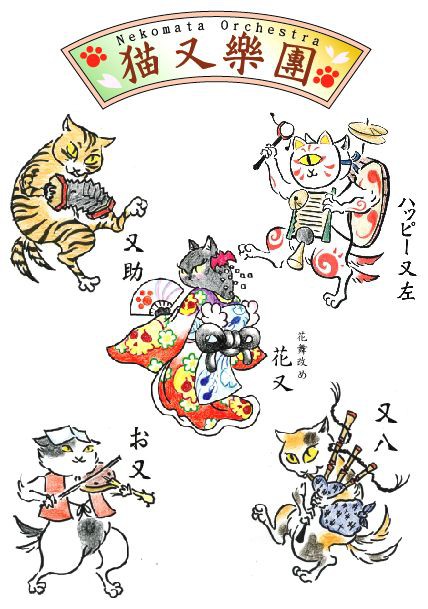 Nekomata Orchestra
猫又樂團
又助
ハッピー又左
花舞改め
花又
お又
又八